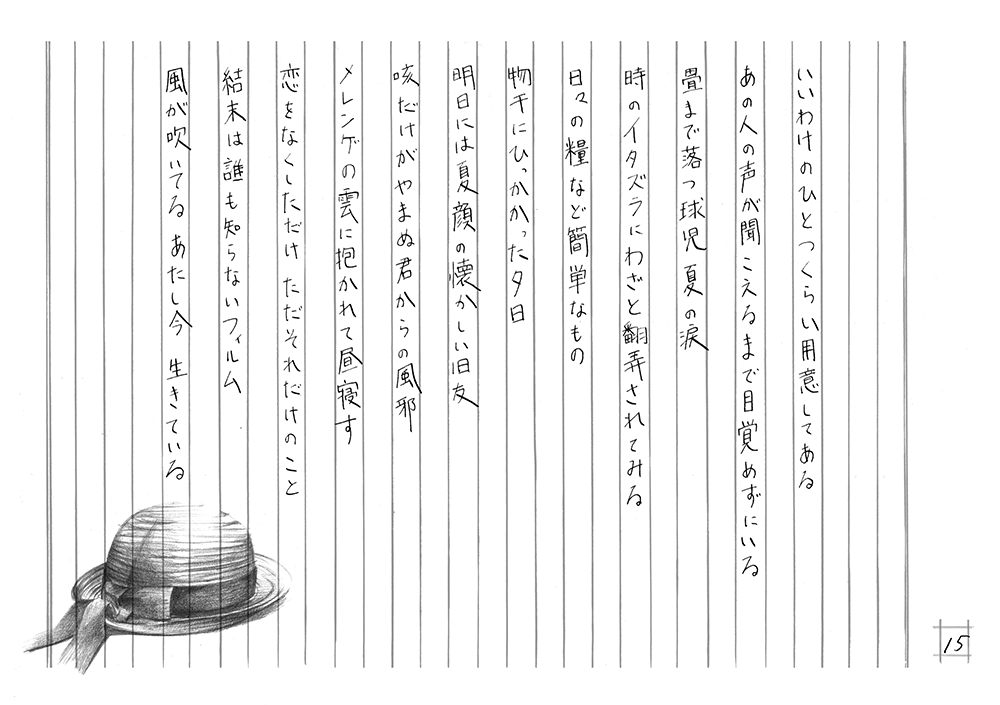 いいわけのひとつくらい用意してある
あの人の声が聞こえるまで目覚めずにいる
畳まで落つ球児 夏の涙
時のイタズラにわざと翻弄されてみる
日々の糧など簡単なもの
物干にひっかかった夕日
明日には夏顔の懐かしい旧友
咳だけがやまぬ君からの風邪
メレンゲの雲に抱かれて昼寝す
恋をなくしただけ ただそれだけのこと
結末は誰も知らないフィルム
風が吹いてる あたし今 生きている
15